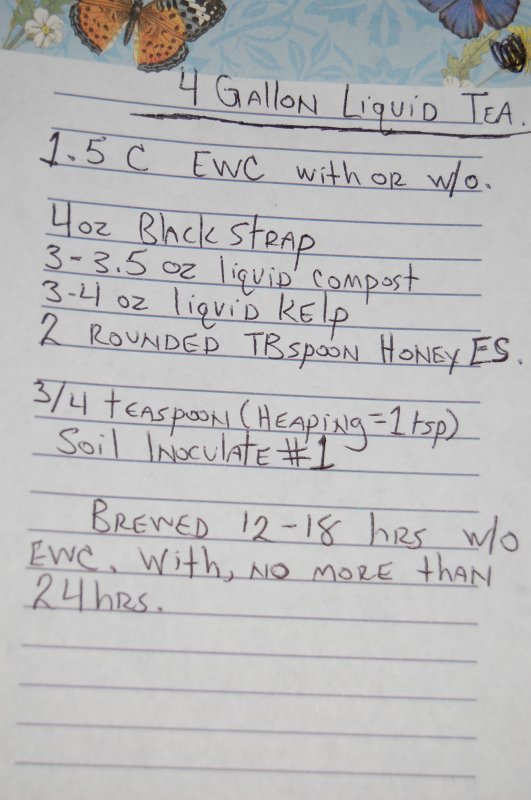 4 GALLON LIQUID TEA.
1.5 C EWC with OR w/o.
4oz BlackSTRAP
3-3.5 oz liquid compost
3-4 oz liquid KElp
2 ROUNDED TBspooN HONEY ES.
3/4 tEAspooN (HEAPiNg=1 tsp)
Soil INoculATE #1
BREWED 12-18 hRs w/o
EWC. With, NO MORE thAN
24hRs.